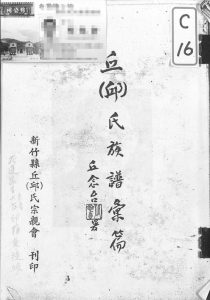 C
16
丘(邱)氏族譜彙篇
丘念台署
新竹縣丘(邱)氏宗親會 刊印